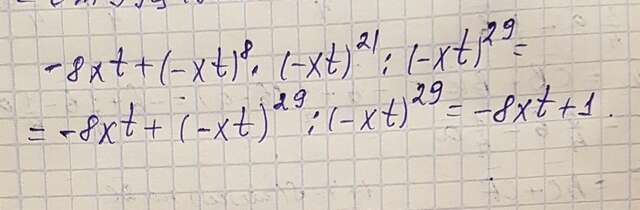 -8xt+(-xt)⁸·(-xt)²¹:(-xt)²⁹=
=-8xt+(-xt)²⁹:(-xt)²⁹=-8xt+1.